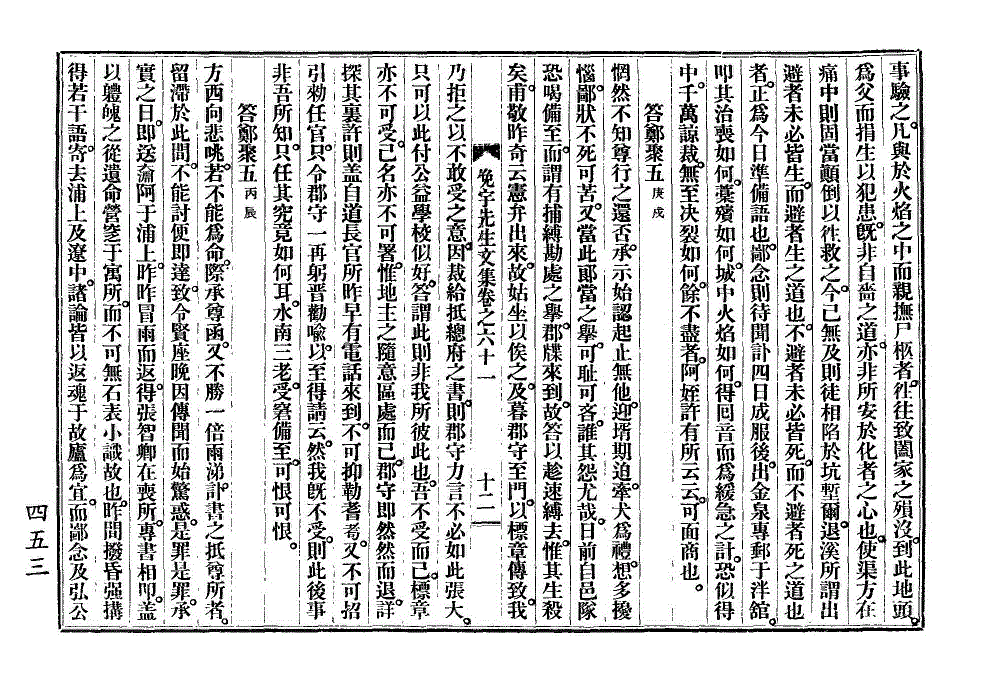 事驗之凡與於火焰之中而親撫尸柩者往往致闔家之殞沒到此地頭
爲父而捐生以犯患旣非自嗇之道亦非所安於化者之心也使渠方在
痛中則固當顚倒以往救之今已無及則徒相陷於坑塹爾退溪所謂出
避者未必皆生而避者生之道也不避者未必皆死而不避者死之道也
者正爲今日準備語也鄙念則待聞訃四日成服後出金泉專郵于泮舘
叩其治喪如何藁殯如何城中火焰如何得回音而爲緩急之計恐似得
中千萬諒裁無至决裂如何餘不盡者阿姪許有所云云可面商也
答鄭聚五 庚戌
惘然不知尊行之還否承示始認起止無他迎壻期迫牽犬爲禮想多擾
惱鄙狀不死可苦又當此鄖當之擧可耻可吝誰其怨尤哉日前自邑隊
恐喝備至而謂有捕縛勘處之擧郡牒來到故答以趁速縛去惟其生殺
矣甫敬昨奇云憲弁出來故姑坐以俟之及暮郡守至門以標章傳致我
俛宇先生文集卷之六十一 十二
乃拒之以不敢受之意因裁給抵總府之書則郡守力言不必如此張大
只可以此付公益學校似好答謂此則非我所彼此也吾不受而已標章
亦不可受己名亦不可署惟地主之隨意區處而已郡守卽然然而退詳
探其裏許則盖自道長官所昨早有電話來到不可抑勒耆考又不可招
引勑任官只令郡守一再躬晋勸喩以至得請云然我旣不受則此後事
非吾所知只任其究竟如何耳水南三老受窘備至可恨可恨
答鄭聚五 丙辰
方西向悲咷若不能爲命際承尊函又不勝一倍雨涕訃書之抵尊所者
留滯於此間不能討便卽達致令賢座晩因傳聞而始驚惑是罪是罪承
實之日卽送裔阿于浦上昨昨冒雨而返得張智卿在喪所專書相叩盖
以軆魄之從遺命營窆于寓所而不可無石表小識故也昨間撥昏强搆
得若干語寄去浦上及遼中諸論皆以返魂于故廬爲宜而鄙念及弘公
四五三